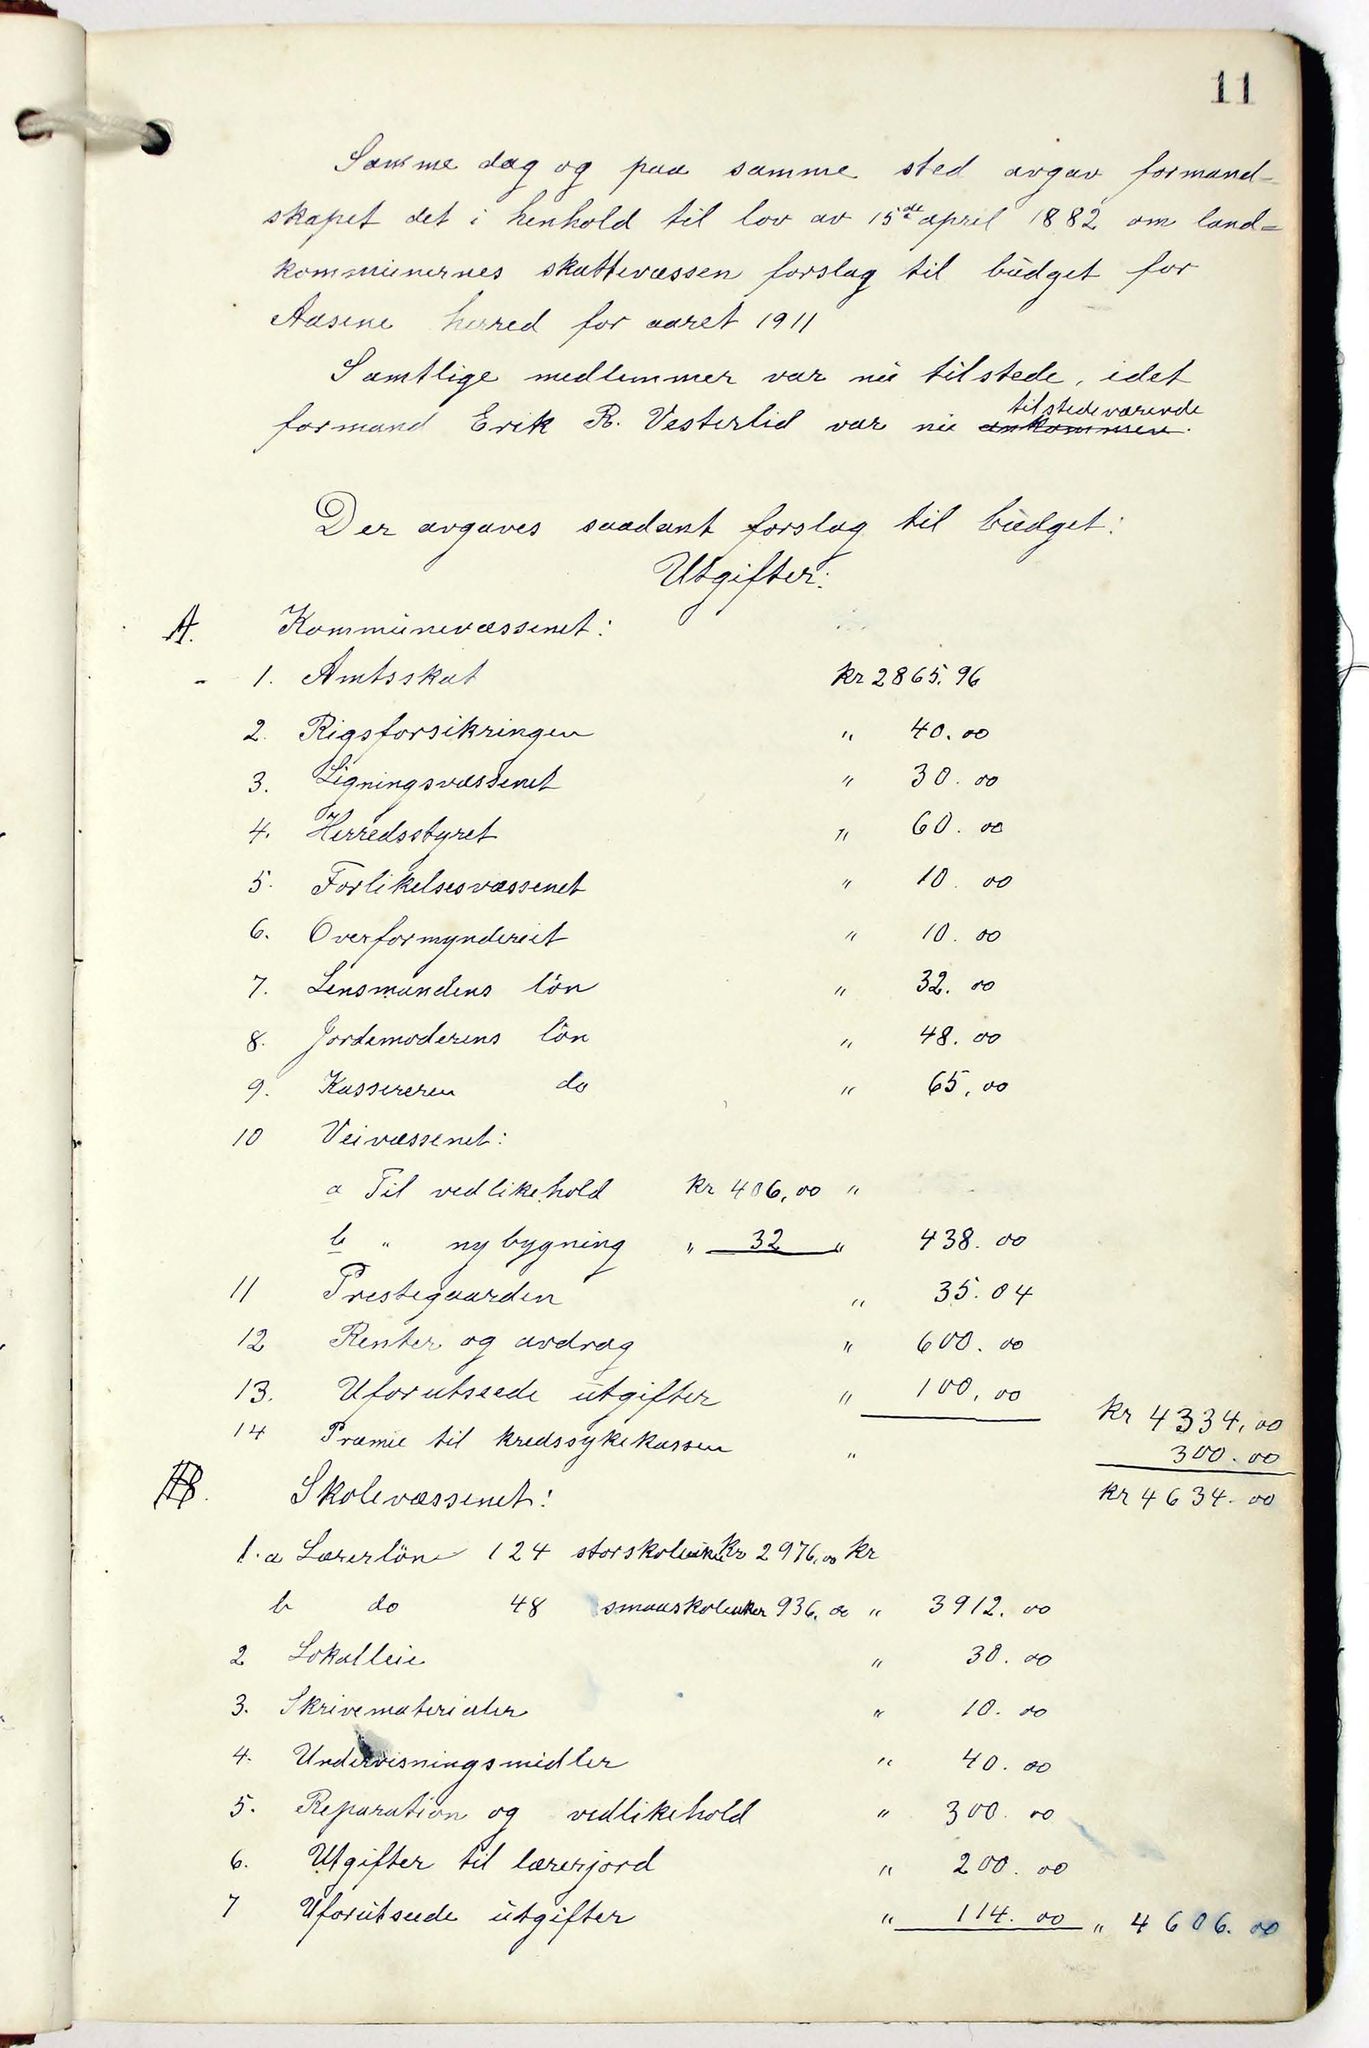 11
Samme dag og paa samme sted avgav formand-
skapet det i henhold til lov av 15de april 1882 om land-
kommunernes skattevæssen forslag til budget for
Aasene herred for aaret 1911
Samtlige medlemmer var nu tilstede, idet
tilstedeværende
formand Erik R. Vesterlid var nu ankommen.
Der avgaves saadant forslag til budget:
Utgifter:
A. Kommunevæssenet:
- 1. Amtsskat kr 2865.96
2. Rigsforsikringen " 40.00
3. Ligningsvæssenet " 30.00
4. Herredsstyret " 60.00
5. Forlikelsesvæssenet " 10.00
6. Overformynderiet " 10.00
7. Lensmandens lön " 32.00
8. Jordemoderens lön " 48.00
9. Kassereren do " 65.00
10 Veivæssenet:
a Til vedlikehold kr 406,00 "
b " nybygning " 32 " 438.00
11 Prestegaarden " 35.04
12 Renter og avdrag " 600.00
13. Uforutseede utgifter " 100,00 kr 4334,00
14 Præmie til kredssykekassen " 300.00
kr 4634.00
B. Skolevæssenet:
1.a Lærerlön 124 storskoleuker Kr 2976,00 kr
b do 48 smaaskoleuker 936.00 " 3912.00
2 Lokalleie " 30.00
3. Skrivematerialer " 10.00
4. Undervisningsmidler " 40.00
5. Reparation og vedlikehold " 300.00
6. Utgifter til lærerjord " 200.00
7 Uforutseede utgifter " 114.00 " 4606.00